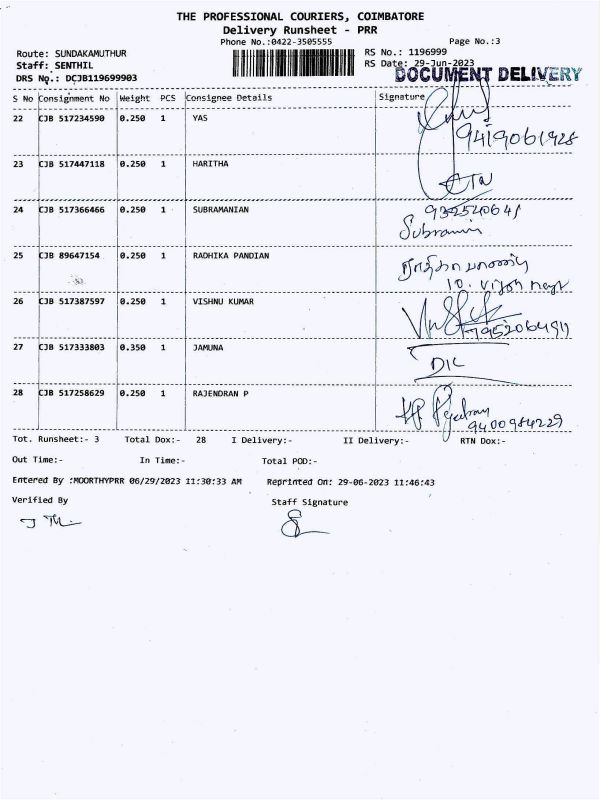 THE PROFESSIONAL COURIERS, COIMBATORE
Delivery Runsheet - PRR
Phone No.:0422-3505555
Page No.:3
Route: SUNDAKAMUTHUR
RS No.: 1196999
Staff: SENTHIL
RS Date: 29-Jun-2023
DRS No.: DCJB119699903
DOCUMENT DELIVERY
S No Consignment No Weight PCS Consignee Details Signature
22 CJB 517234590 0.250 1 YAS
9419061928
23 CJB 517447118 0.250 1 HARITHA
24 CJB 517366466 0.250 1 SUBRAMANIAN
25 CJB 89647154 0.250 1 RADHIKA PANDIAN
26 CJB 517387597 0.250 1 VISHNU KUMAR
27 CJB 517333803 0.350 1 JAMUNA
28 CJB 517258629 0.250 1 RAJENDRAN P
9400984229
Tot. Runsheet:- 3 Total Dox:- 28 I Delivery:- II Delivery:- RTN Dox:-
Out Time:- In Time:- Total POD:-
Entered By :MOORTHYPRR 06/29/2023 11:30:33 AM Reprinted On: 29-06-2023 11:46:43
Verified By Staff Signature